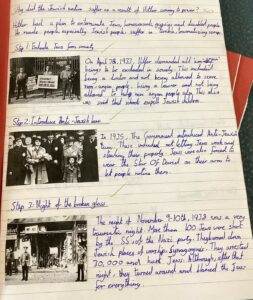 How did the Jewish nation suffer as a result of Hitler coming to power?
Hitler had a plan to exterminate Jews, homosexuals, gypsies and disabled people
to make people, especially Jewish people suffer in
Step 1: Exclude Jews from society
On April 7th, 1933, Hitler demanded all
beings to be excluded in society. This included
being a doctor and not being allowed to serve
non-aryan people, being a lawyer and not being
allowed to help non aryan people
was said that schools expell Jewish children.
Step 2: Introduce Anti-Jewish laws
In 1935, The Government introduced Anti-Jewish
laws. These included not letting Jews work and
attacking their property. Jews were also forced to
wear the Star Of David on their arm to
let people notice them.
Step 3: Night of the broken glass
The night of November 9-10th, 1938 was a very
traumatic night. More than 100 Jews were shot
by the SS of the Nazi party. They burned down
Jewish places of worship: Synagogues. They arrested
20,000 and hurt Jews. Although, after that
night, they turned around and blamed the Jews
for everything.